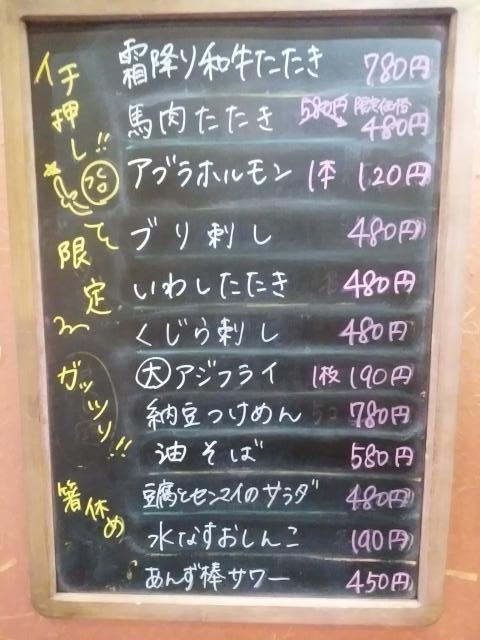 イチ押し!!
霜降り和牛たたき 780円
馬肉たたき 580円 限定価格 480円
アブラホルモン 1本 120円
限定
ブリ刺し 480円
いわしたたき 480円
くじら刺し 480円
ガッツリ!!
大アジフライ 1枚 190円
納豆つけめん 780円
油そば 580円
箸休め
豆腐とセンマイのサラダ 480円
水なすおしんこ 190円
あんず棒サワー 450円